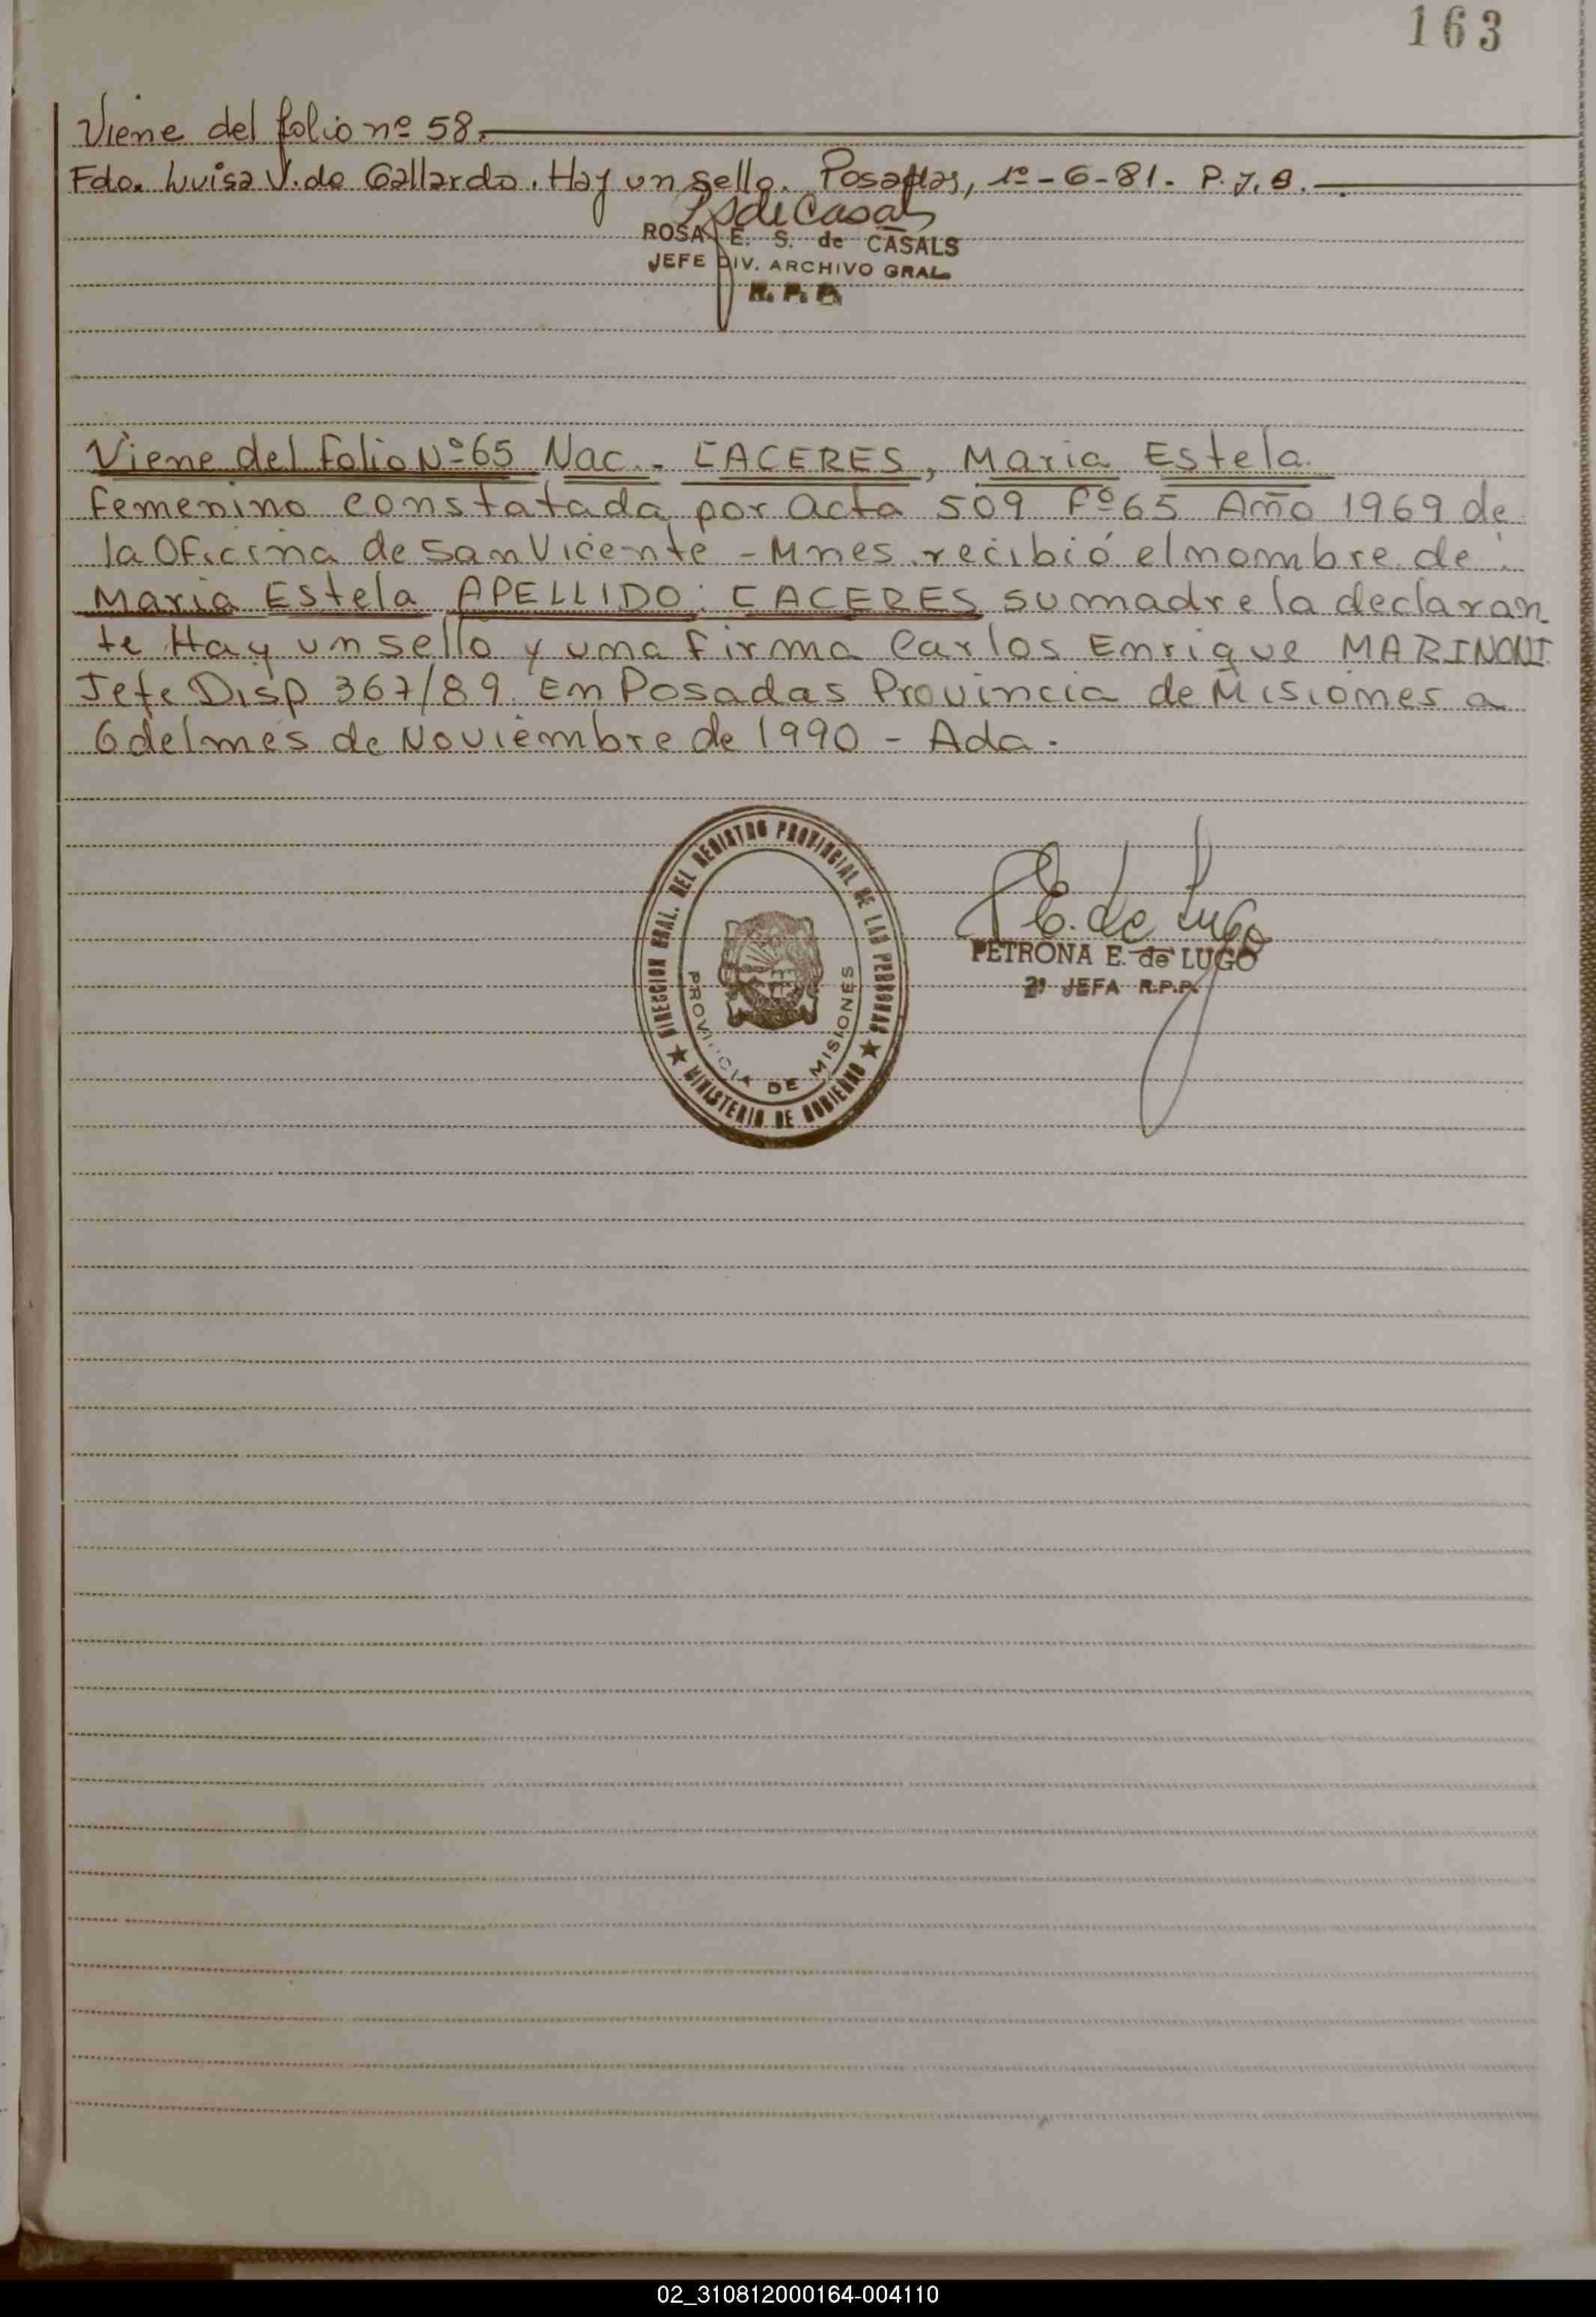 163
Viene del folio nº 58.
Fdo. Luisa V. de Gallardo. Hay un sello. Posadas, 1º-6-81. P. J. B.
ROSA E. S. de CASALS
JEFE DIV. ARCHIVO GRAL
R. P. P.
Viene del Folio Nº 65 Nac.. CACERES, Maria Estela.
Femenino constatada por Acta 509 Fº 65 Año 1969 de
la Oficina de San Vicente - Mnes. recibió el nombre de:
Maria Estela APELLIDO: CACERES su madre la declaran
te Hay un sello y una Firma Carlos Enrique MARINONI
Jefe Disp 367/89. En Posadas Provincia de Misiones a
6 del mes de Noviembre de 1990 - Ada.
DIRECCION GRAL. DEL REGISTRO PROVINCIAL DE LAS PERSONAS
PROVINCIA DE MISIONES
MINISTERIO DE GOBIERNO
P E. de Lugo
PETRONA E. de LUGO
2ª JEFA R.P.P.
02_310812000164-004110